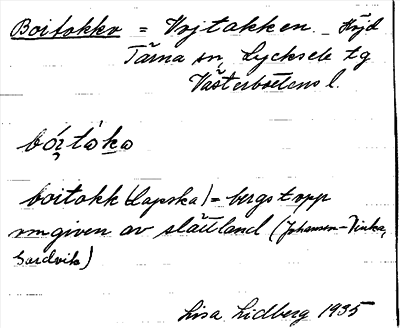 Boitokko = Vojtakken. Höjd
Tärna sn, Lycksele tg
Västerbottens l.
bóɿ̣tàḵo
boitokk (Lapska) = bergstopp
omgiven av slättland (Johansen-Vinka,
Sardvik)
Lisa Lidberg 1935